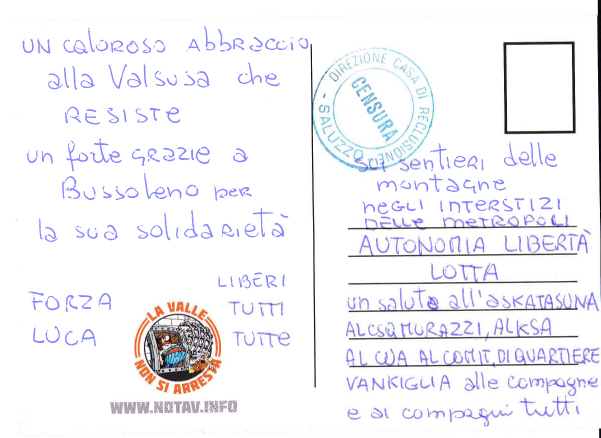 UN CALOROSO ABBRACCIO
alla Valsusa che
RESISTE
un forte GRAZIE a
Bussoleno per
la sua solidarietà
FORZA
LUCA
LIBERI
TUTTI
TUTTE
LA VALLE
NON SI ARRESTA
WWW.NOTAV.INFO
DIREZIONE CASA DI RECLUSIONE
- SALUZZO -
CENSURA
sentieri delle
montagne
negli INTERSTIZI
DELLE METROPOLI
AUTONOMIA LIBERTÀ
LOTTA
un saluto all'ASKATASUNA
AL CSA MURAZZI, AL KSA
AL CUA AL COMIT. DI QUARTIERE
VANKIGLIA alle compagne
e ai compagni tutti